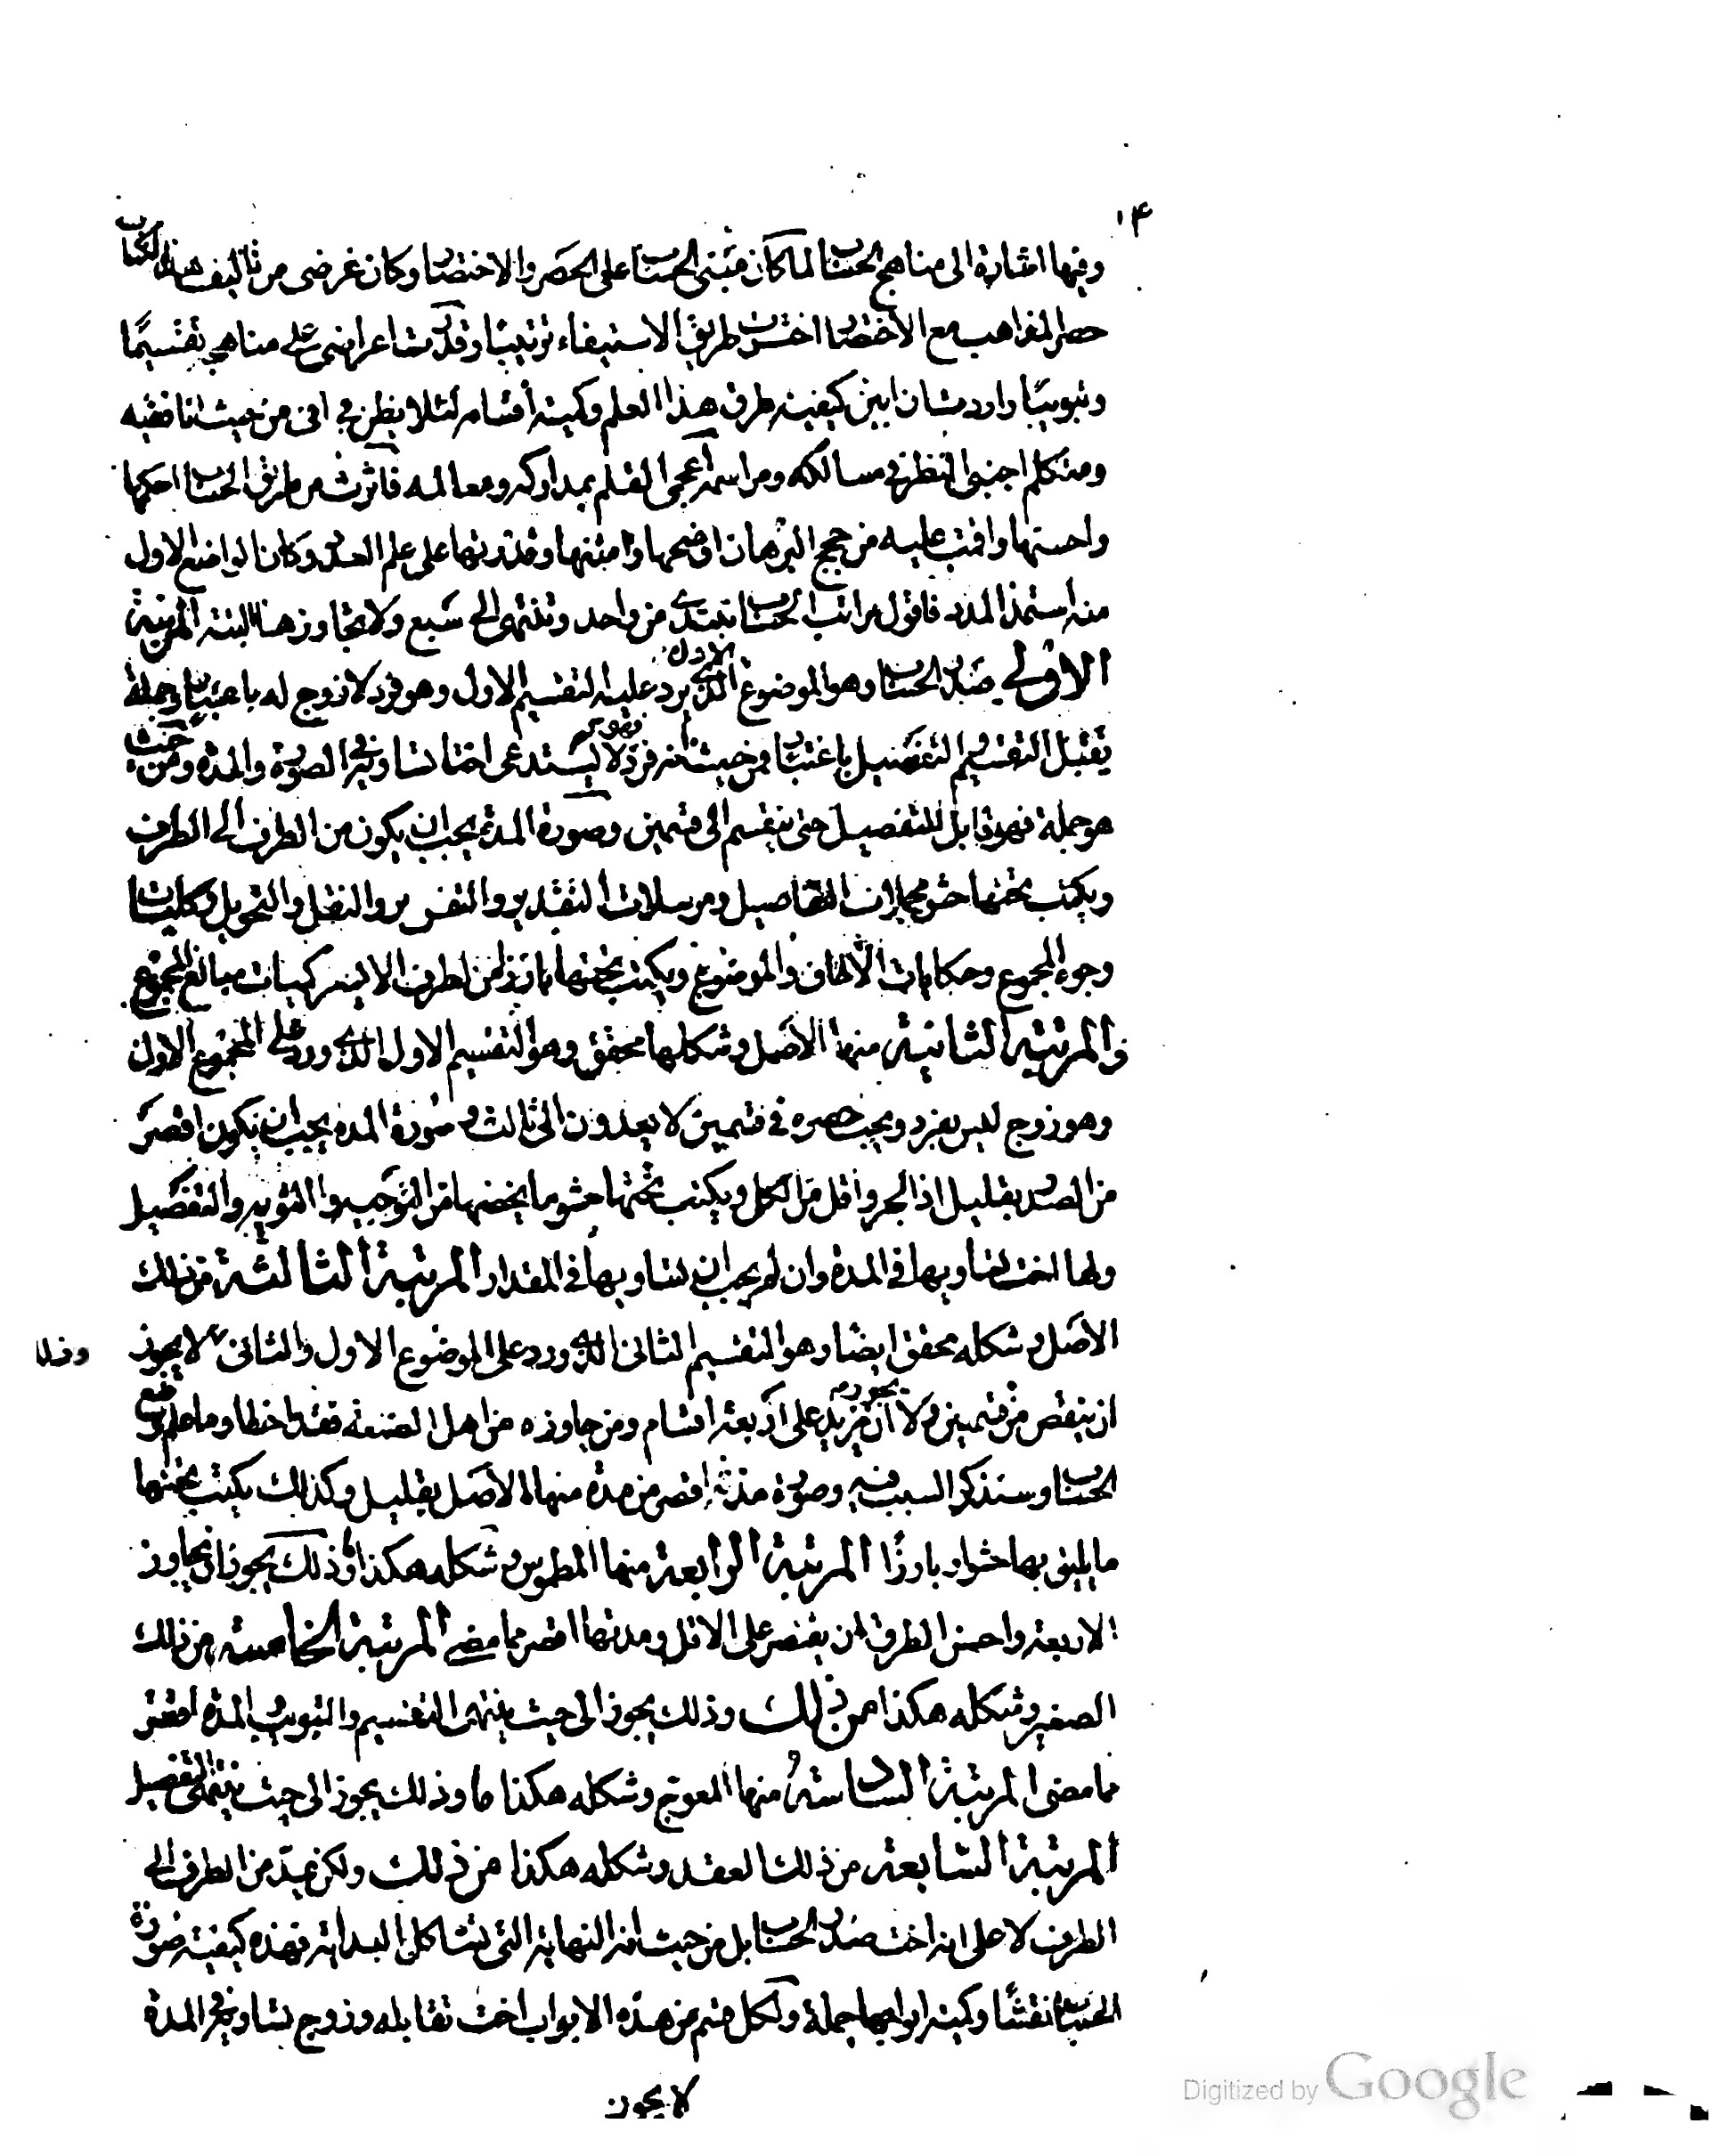 ١۴
وفيها اشارة الى مناهج الحساب لما كان مبنى الحساب على الحصر والاختصار وكان غرضى من تاليف هذا الكتاب
حصر المذاهب مع الاختصار اخترت طريق الاستيفاء ترتيبا وقدرت اغراضى على مناهجه تقسيما
وتبويبا واردت ان ابين كيفية طرق هذا العلم وكمية اقسامه لئلا يظن بى انى من حيث انا فقيه
ومتكلم اجنبى النظر فى مسالكه ومراسمه اعجمى القلم بمداركه ومعالمه فاثرت من طريق الحساب احكمها
واحسنها واقمت عليه من حجج البرهان اوضحها وامتنها وقدرتها على علم العدد وكان الواضع الاول
منه استمد المدد فاقول مراتب الحساب تبتدى من واحد وتنتهى الى سبع ولا تجاوزها البتة المرتبة
الاولى صدر الحساب وهو الموضوع الاول الذى يرد عليه التقسيم الاول وهو فرد لا زوج له باعتبار وجملة
يقبل التقسيم والتفصيل باعتبار فمن حيث انه فرد فهو لا يستدعى اختا تساويه فى الصورة والمدة ومن حيث
هو جملة فهو قابل للتفصيل حتى ينقسم الى قسمين وصورة المدة يجب ان يكون من الطرف الى الطرف
ويكتب تحتها حشوا مجملات التفاصيل ومرسلات التقدير والتقرير والنقل والتحويل وكليات
وجوه المجموع وحكايات الالحاق والموضوع ويكتب تحتها بارزا من الطرف الايسر كميات مبالغ المجموع
والمرتبة الثانية منها الاصل وشكلها محقق وهو التقسيم الاول الذى ورد على المجموع الاول
وهو زوج ليس بفرد ويجب حصره فى قسمين لا يعدوان الى ثالث وصورة المدة يجب ان يكون اقصر
من الصدر بقليل اذ الجزو اقل من الكل ويكتب تحتها حشو ما يخصها من التوجيه والتنويع والتفصيل
ولها اخت تساويها فى المدة وان لم يجب ان تساويها فى المقدار المرتبة الثالثة من ذلك
الاصل وشكله محقق ايضا وهو التقسيم الثانى الذى ورد على الموضوع الاول والثانى لا يجوز
وذلك
ان ينقص من قسمين ولا يجوز ان يزيد على اربعة اقسام ومن جاوزه من اهل الصنعة فقد اخطا وما علم وضع
الحساب وسنذكر السبب فيه وصورة مدته اقصر من مدة منها الاصل بقليل وكذلك يكتب تحتها
ما يليق بها حشوا وبارزا المرتبة الرابعة منها المطموس وشكله هكذا وذلك يجوز ان يجاوز
الاربعة واحسن الطرق ان يقتصر على الاقل ومدتها اقصر مما مضى المرتبة الخامسة من ذلك
الصغير وشكله هكذا من ذلك وذلك يجوز الى حيث ينتهى التقسيم والتبويب والمدة اقصر
مما مضى المرتبة السادسة منها المعوج وشكله هكذا ما وذلك يجوز الى حيث ينتهى التفصيل
المرتبة السابعة من ذلك العقد وشكله هكذا من ذلك ولكن يمد من الطرف الى
الطرف لا على انه اخت صدر الحساب بل من حيث انه النهاية التى تشاكل البداية فهذه كيفية صورة
الحساب نقشا وكمية ابوابها جملة ولكل قسم من هذه الابواب اخت تقابله وزوج يساويه فى المدة
لا يجوز
Digitized by Google